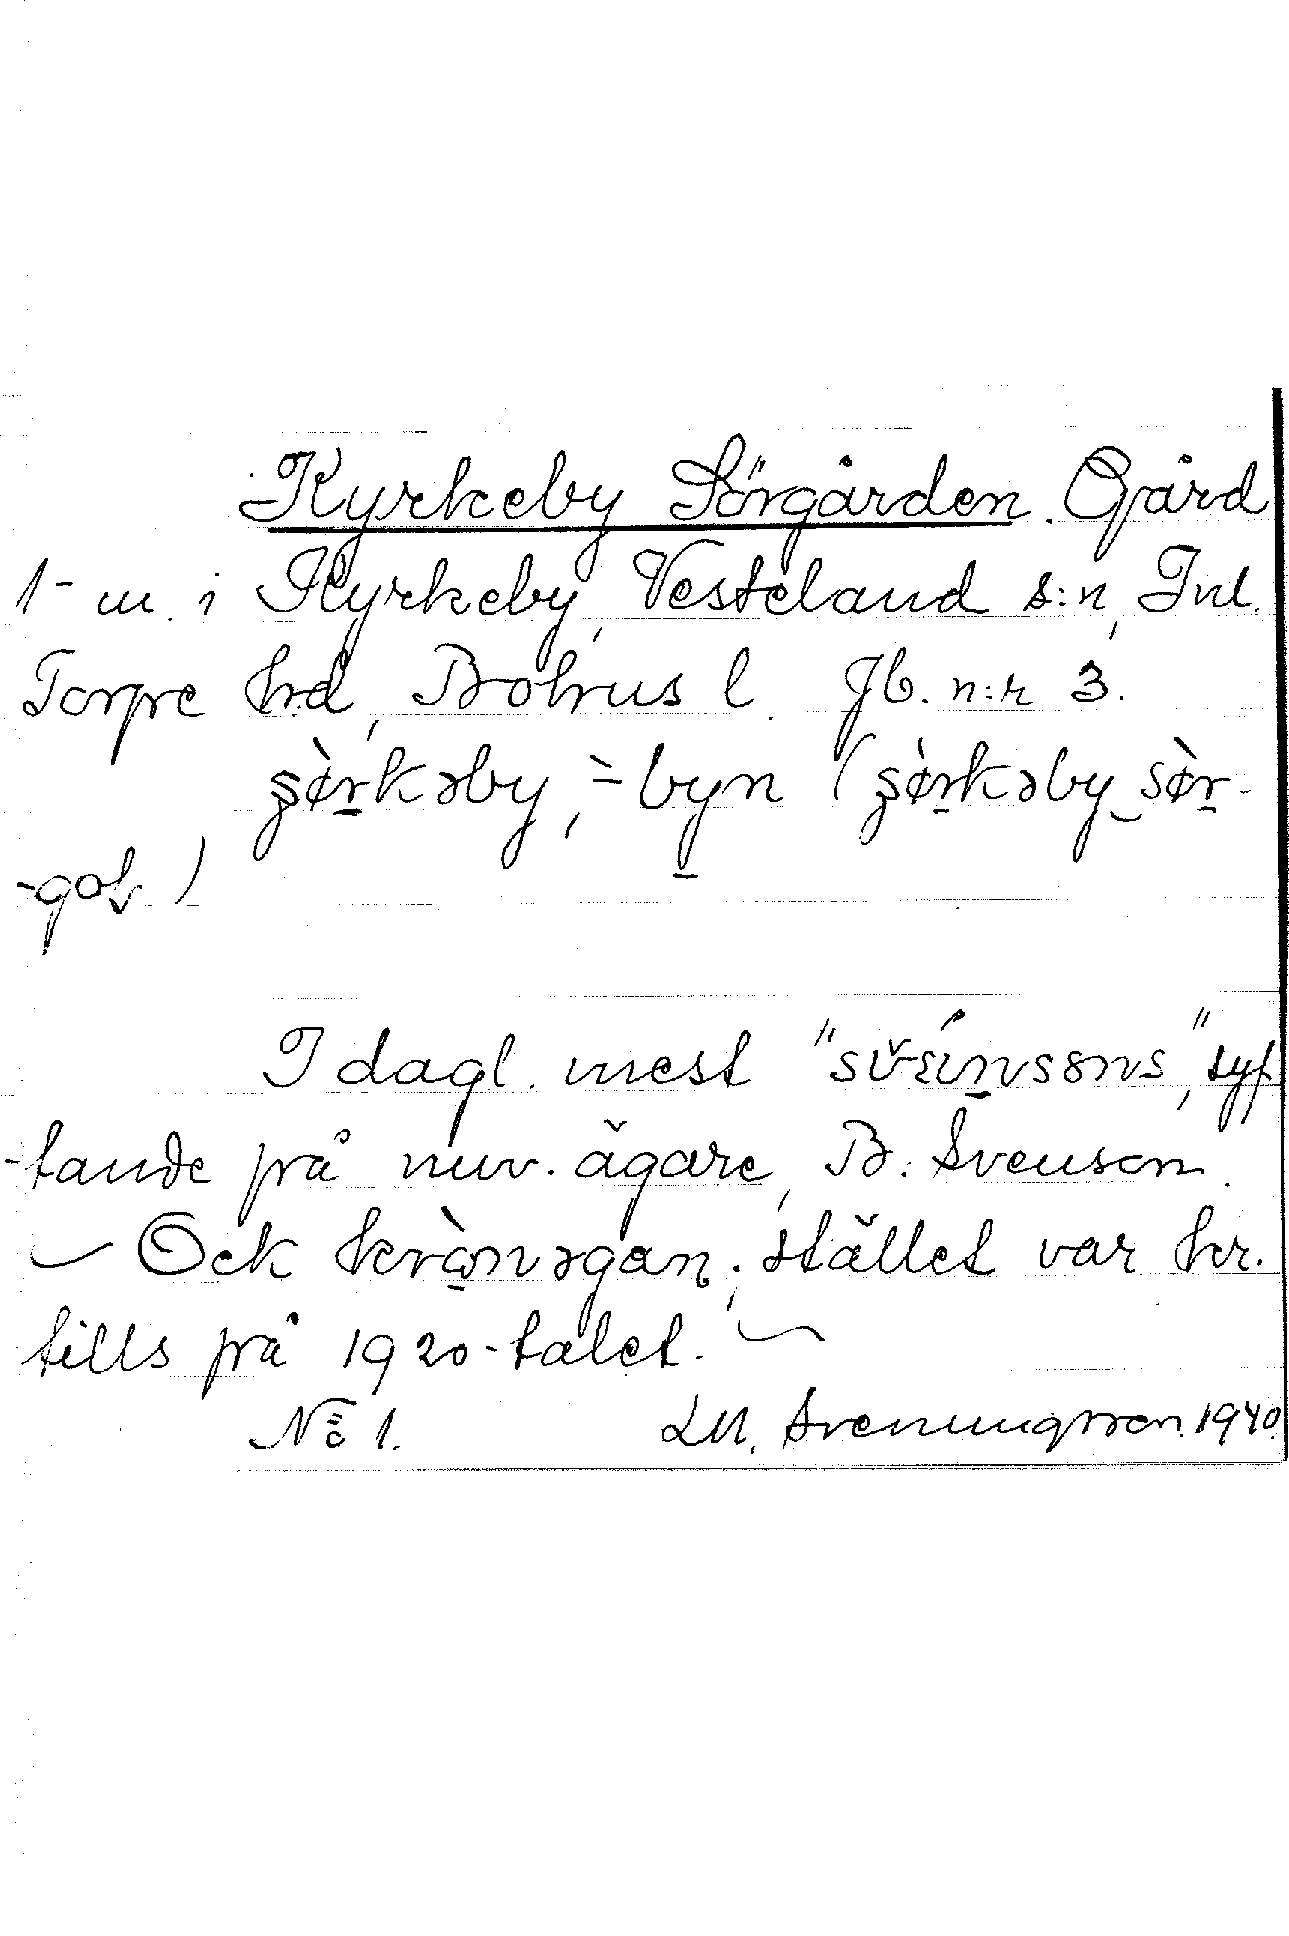 Kyrkeby Sörgården. Gård
1- m. i Kyrkeby, Vesteland s:n, Inl.
Torpe hrd, Bohus l. Jb. n:r 3.
ʂø̀rkəby, -̀byn (ʂø̀rkəby sø̀r-
-gɑɽ.)
I dagl. mest "svɛ́insons", syf-
-tande på nuv. ägare, B. Svenson.
– Ock krònəgan; stället var kr.
tills på 1920-talet. –
No 1. LM. Svenungsson. 1940.